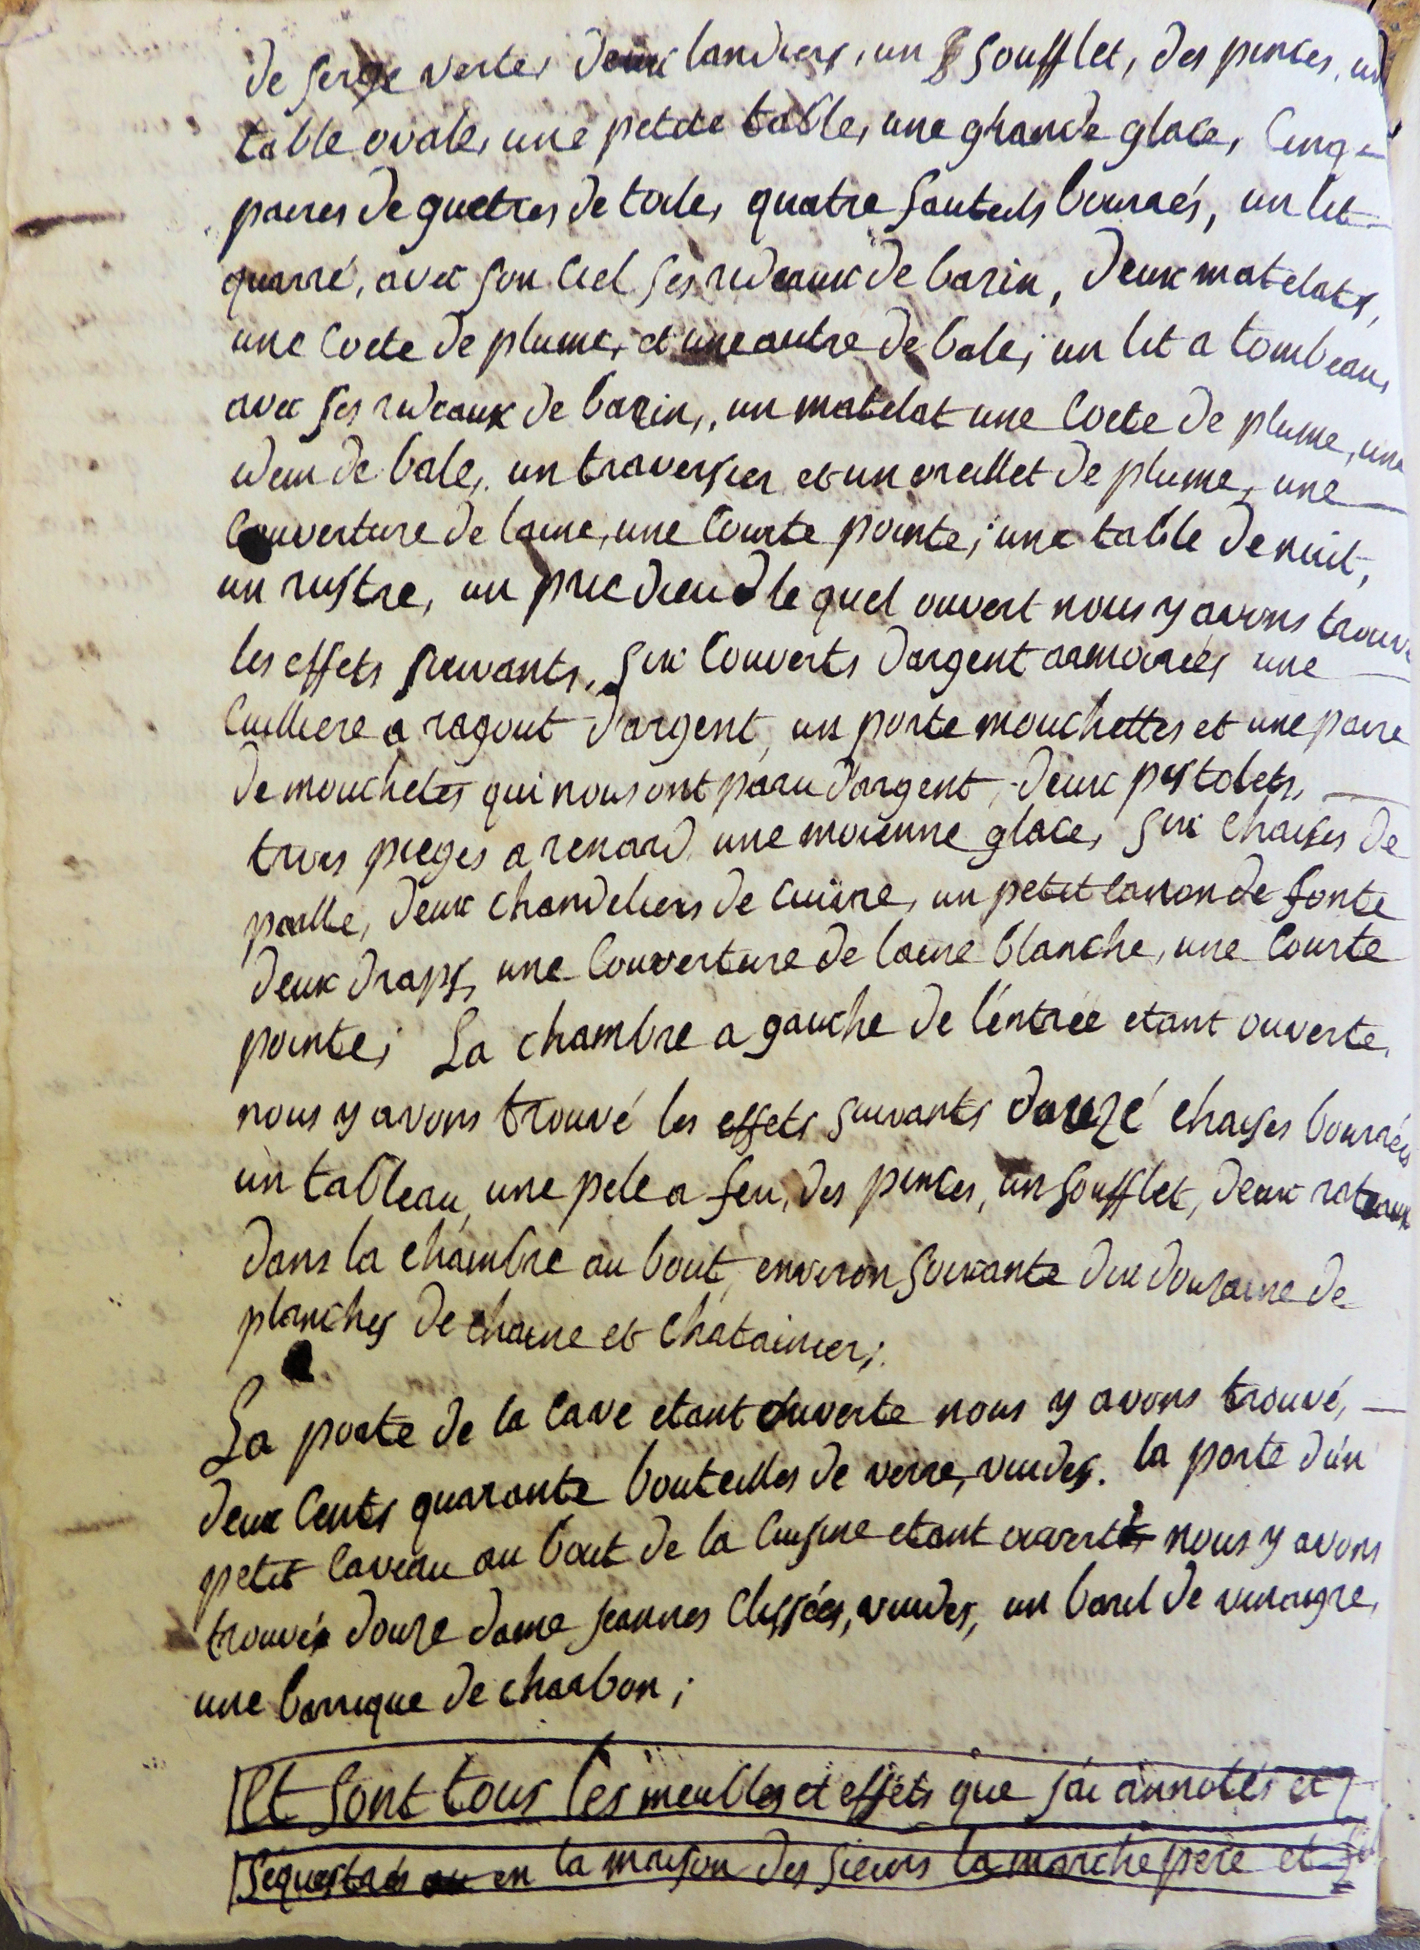 de serge verte, deux landiers, un soufflet, des pinces, un
table ovale, une petite table, une grande glace, Cinq
paires de guetres de toile, quatre fauteuils bourrés, un lit
quarré, avec son Ciel ses rideaux de bazin, deux matelats,
une Coete de plume, et une autre de bale; un lit a tombeau,
avec ses rideaux de bazin,, un matelat une Coete de plume, une
idem de bale, un traversier et un oreillet de plume, une
Couverture de laine, une Courte pointe; une table de nuit,
un rustre, un prie dieu le quel ouvert nous y avons trouvé
les effets suivants, six Couverts d'argent armoiriés une
Cuilliere a ragout d'argent, un porte mouchettes et une paire
de mouchetes qui nous ont paru d'argent, deux pistolets,
trois pieges a renard une moienne glace, six chaises de
paille, deux chandeliers de Cuivre, un petit canon de fonte
deux draps, une Couverture de laine blanche, une Courte
pointe; La chambre a gauche de l'entrée etant ouverte
nous y avons trouvé les effets suivants douze chaises bourrées
un tableau, une pele a feu, des pinces, un soufflet, deux rateaux
dans la chambre au bout, environ soixante dix douzaine de
planches de chaine et chatainier;
La porte de la Cave etant ouverte nous y avons trouvé,
deux Cents quarante bouteilles de verre, vuides. la porte d'un
petit Caveau au bout de la Cuisine etant ouverte nous y avons
trouvé douze dame jeannes Clissées, vuides, un baril de vinaigre,
une barrique de charbon;
Et sont tous les meubles et effets que j'ai annotés et
séquestrés en la maison des sieurs la marche pere et fils